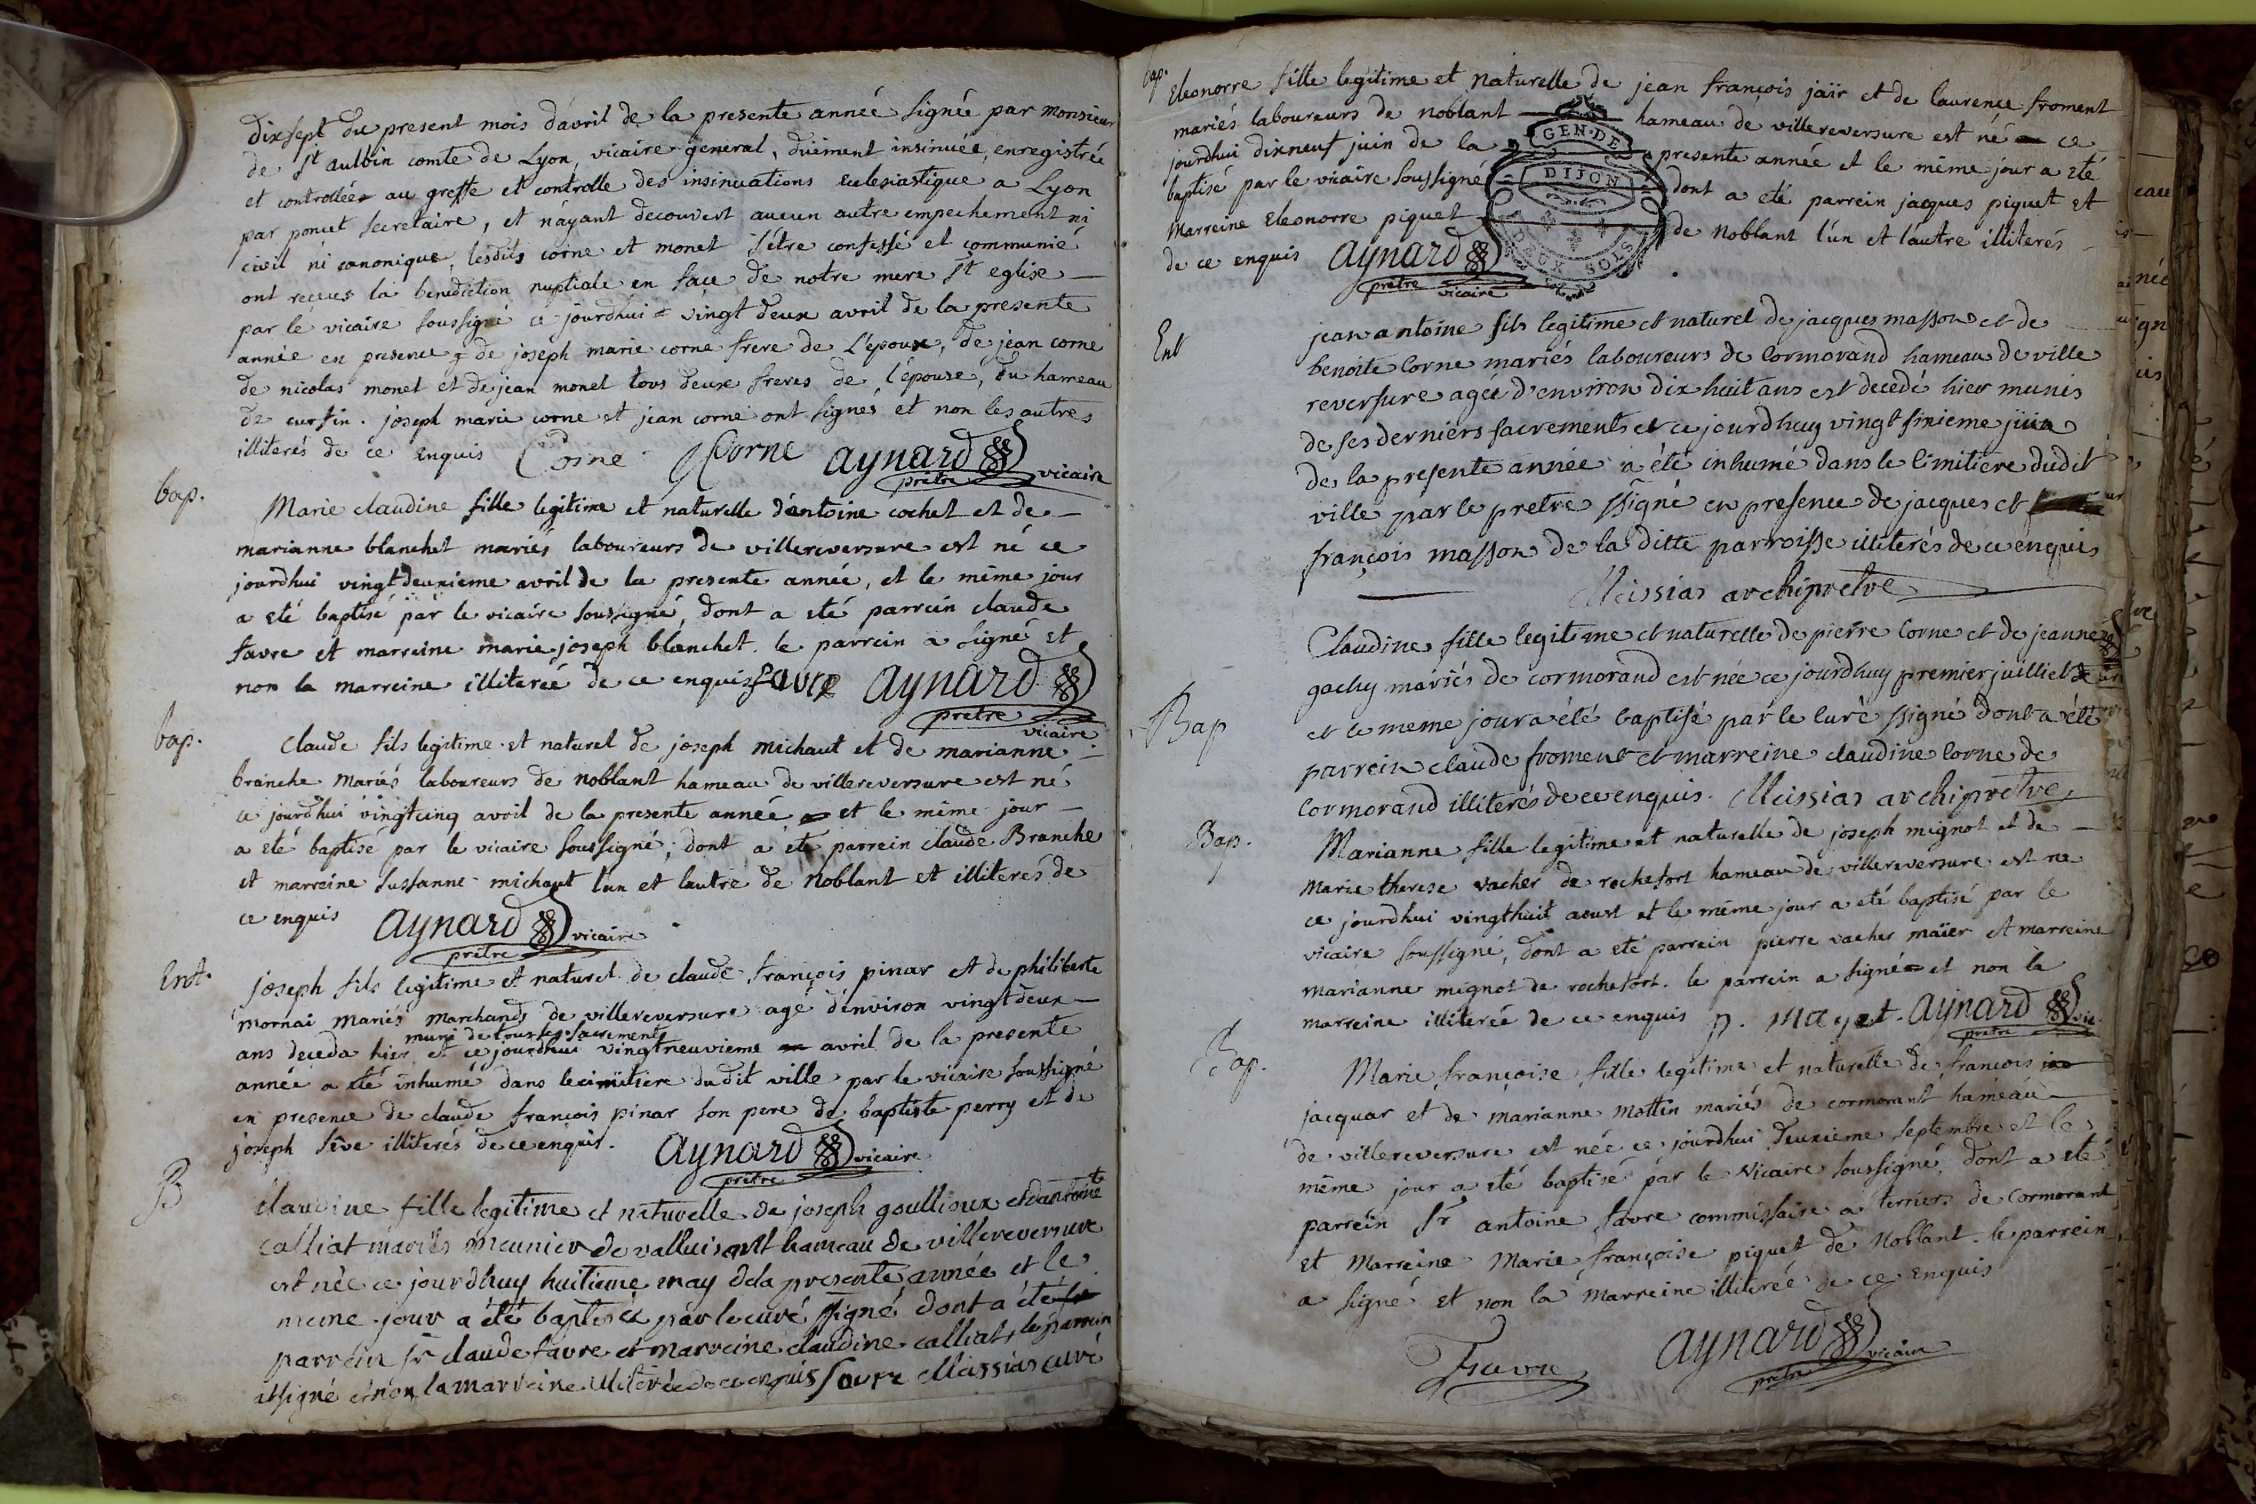 dixsept du present mois d'avril de la presente année signée par monsieur
de St aulbin comte de Lyon, vicaire general, duëment insinuée, enregistrée
et controllée au greffe et controlle des insinuations eclesiastique a Lyon
par poncet secretaire, et n'ayant decouvert aucun autre empechement ni
civil ni canonique, lesdits corne et monet s'être confessé et communié
ont reçeues la benediction nuptiale en face de notre mere Ste eglise
par le vicaire soussigné ce jourdhui vingt deux avril de la presente
année en presence de joseph marie corne frere de L'epoux, de jean corne
de nicolas monet et de jean monet tous deux freres de l'épouse, du hameau
de cursin. joseph marie corne et jean corne ont signés et non les autres
illiterés de ce enquis Corne JCorne aynard prêtre vicaire
bap.
Marie claudine fille legitime et naturelle d'antoine cochet et de
marianne blanchet mariés laboureurs de villereversure est né ce
jourdhui vingtdeuxieme avril de la presente année, et le même jour
a eté baptisé par le vicaire soussigné, dont a eté parrein claude
favre et marreine marie joseph blanchet. le parrein a signé et
non la marreine illiterée de ce enquis favre aynard
prêtre vicaire
bap.
Claude fils legitime et naturel de joseph michaut et de marianne
branche mariés laboureurs de noblant hameau de villereversure est né
ce jourdhui vingtcinq avril de la presente année et le même jour
a eté baptisé par le vicaire soussigné, dont a eté parrein claude Branche
et marreine sussanne michaut l'un et lautre de noblant et illiterés de
ce enquis aynard prêtre vicaire
Ent.
joseph fils legitime et naturel de claude françois pinar et de philiberte
mornai mariés marchands de villereversure agé d'environ vingtdeux
muni de tous les sacrements
ans deceda hier et ce jourdhui vingtneuvieme avril de la presente
année a eté inhumé dans le cimitiere dudit ville par le vicaire soussigné
en presence de claude françois pinar son pere de baptiste perry et de
joseph sève illiterés de ce enquis. aynard prêtre vicaire
B
claudine fille legitime et naturelle de joseph goullioux et dantoinette
calliat mariés meunier de valluisant hameau de villereversure
est née ce jourdhuy huitieme may dela presente année et le
meme jour a été baptisée par le curé ssigné dont a été
parrein sr claude favre et marreine claudine calliat, le parrein
a ssigné et non la marreine illiterée de ce enquis favre Massias curé
bap.
Eleonorre fille legitime et naturelle de jean françois jaïr et de laurence froment
mariés laboureurs de noblant hameau de villereversure est né ce
jourdhui dixneuf juin de la presente année et le même jour a eté
baptisé par le vicaire soussigné dont a eté parrein jacques piquet et
Marreine Eleonorre piquet de noblant l'un et lautre illiterés
de ce enquis aynard prêtre vicaire
GEN. DE
DIJON
DEUX SOLS
Ent
jean antoine fils legitime et naturel de jacques masson et de
benoite corne mariés laboureurs de cormorand hameau de ville
reversure agée d'environ dix huit ans est decedé hier munis
de ses derniers sacrements et ce jourdhuy vingt sixieme juin
de la presente année a été inhumé dans le cimitiere dudit
ville par le pretre ssigné en presence de jacques et
françois masson de la ditte parroisse illiterés de ce enquis
Meissias archipretre
Bap
Claudine fille legitime et naturelle de pierre corne et de jeanne
gachy mariés de cormorand est née ce jourdhuy premier juilliet
et le meme jour a été baptisé par le curé ssigné dont a été
parrein claude froment et marreine claudine corne de
cormorand illiterés de ce enquis. Meissias archipretre
Bap.
Marianne fille legitime et naturelle de joseph mignot et de
Marie therese vacher de rochefort hameau de villereversure est né
ce jourdhui vingthuit aoust et le même jour a eté baptisé par le
vicaire soussigné, dont a eté parrein pierre vacher maïer et marreine
marianne mignot de rochefort. le parrein a signé et non la
marreine illiterée de ce enquis p. mayet. aynard prêtre vic
Bap.
Marie françoise fille legitime et naturelle de françois
jacquar et de marianne mottin mariés de cormorant hameau
de villereversure est née ce jourdhui deuxieme septembre et le
même jour a eté baptisé par le vicaire soussigné, dont a eté
parrein Sr antoine favre commissaire a terriers de cormorant
et Marreine Marie françoise piquet de Noblant. le parrein
a signé et non la marreine illiterée de ce enquis
Favre aynard prêtre vicaire